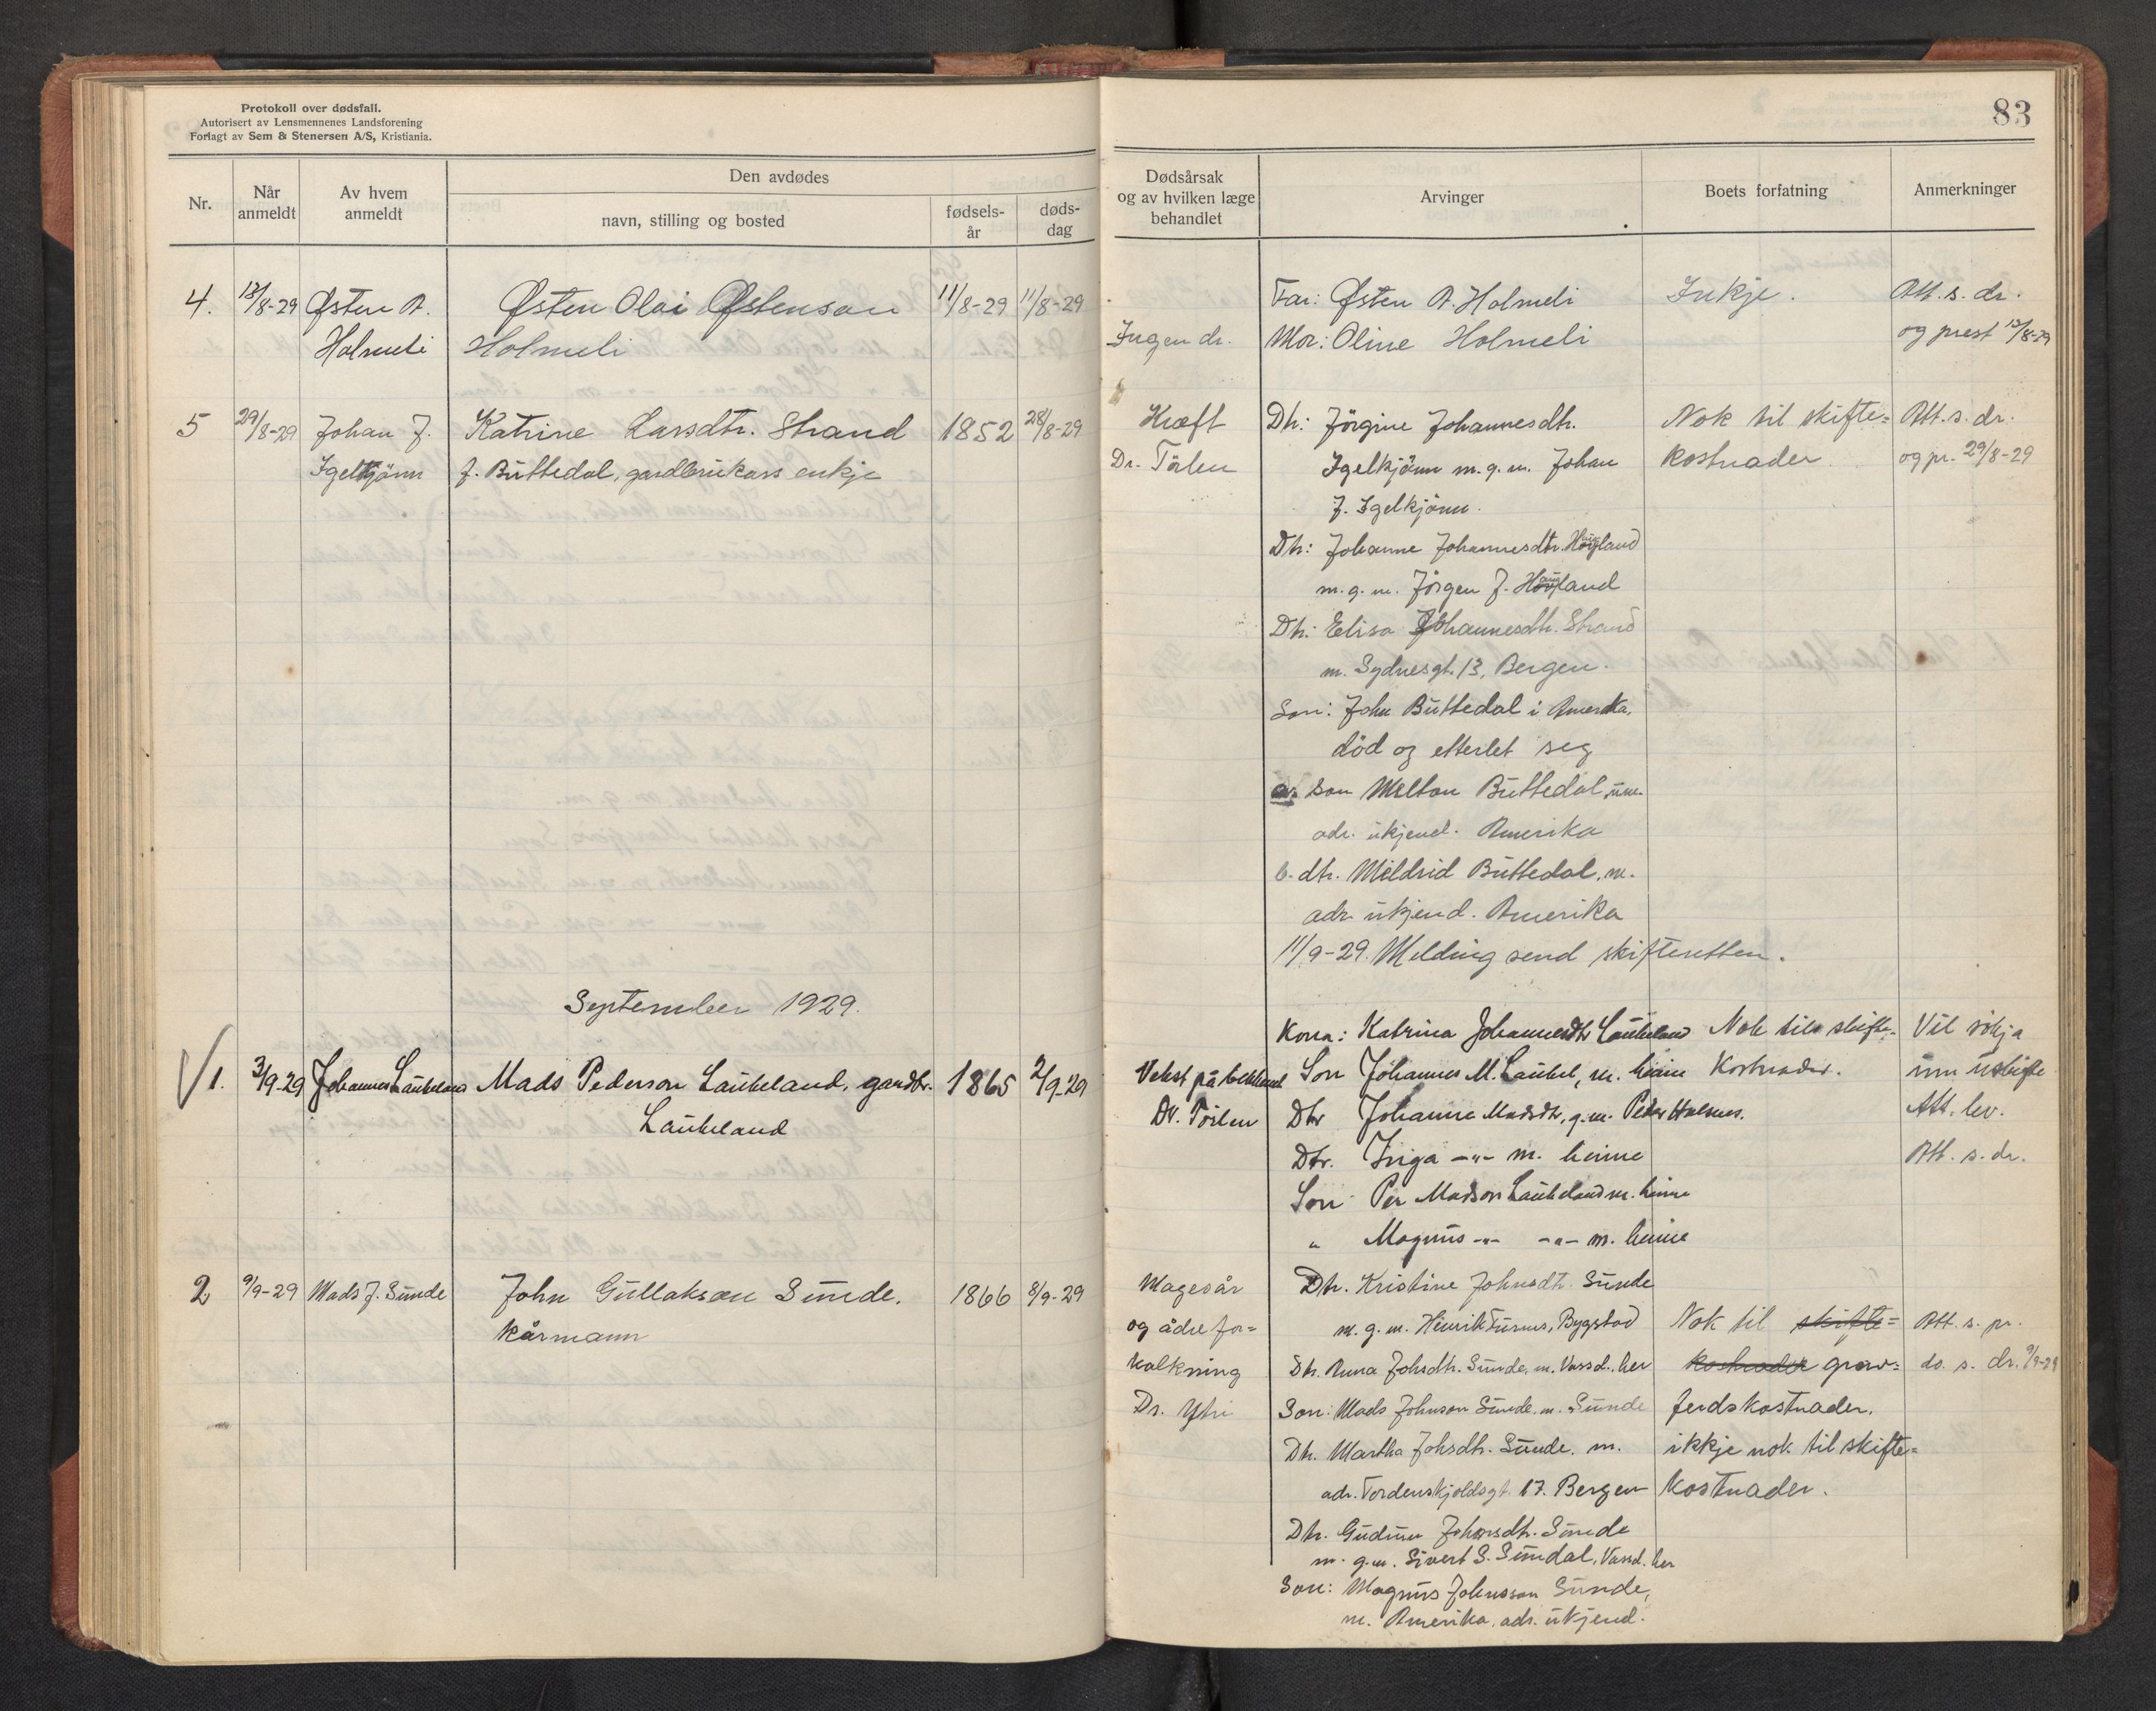 Protokoll over dødsfall.
Autorisert av Lensmennenes Landsforening
Forlagt av Sem & Stenersen A/S, Kristiania.
Nr.
Når anmeldt
Av hvem anmeldt
Den avdødes
navn, stilling og bosted
fødsels-år
døds-dag
4. 13/8-29 Østen A. Østen Olai Østenson 11/8-29 11/8-29
Holmeli Holmeli
5 29/8-29 Johan J. Katrine Larsdtr. Strand 1852 28/8-29
Igelkjönn f. Büttedal, gardbrukars enkje
September 1929.
1. 3/9-29 Johannes Laukeland Mads Pederson Laukeland, gardbr. 1865 2/9-29
Laukeland
2 9/9-29 Mads J. Sunde John Gullakson Sunde. 1866 8/9-29
kårmann
83
Dødsårsak
og av hvilken læge
behandlet
Arvinger
Boets forfatning
Anmerkninger
Far: Østen A. Holmeli Inkje. Att. s. dr.
Ingen dr. Mor: Oline Holmeli og prest 13/8-29
Kræft Dtr: Jörgine Johannesdtr. Nok til skifte= Att. s. dr.
Dr. Törlen Igelkjönn m. g. m. Johan kostnader og pr. 29/8-29
J. Igelkjönn.
Dtr: Johanne Johannesdtr.
m. g. m. Jörgen J.
Dtr: Elisa Johannesdtr. Strand
m. Sydnesgt. 13, Bergen.
Son: John Büttedal i Amerika,
död og etterlet seg
a. son Melton Büttedal
adr. ukjend. Amerika
b. dtr. Mildrid Büttedal, m.
adr. ukjend. Amerika
11/9-29. Melding send skifteretten.
Kona: Katrina Johannesdtr Laukeland Nok til skifte- Vil sökja
Vekst på Son Johannes M. Laukel, m. heime kostnader. um uskifte
Dr. Törlen Dtr Johanne Madsdtr, g. m. Peder Halsnes. Att. lev.
Dtr. Inga -"- m. heime Att. s. dr.
Son Per Madson Laukeland m. heime
" Magnus -"- -"- m. heime
Magesår Dtr. Kristine Johnsdtr. Sunde
og ådrefor= m. g. m. Henrik Bygstad Nok til skifte= Att. s. pr.
kalkning Dtr. Anna Johsdtr. Sunde, m. Vassd. her kostnader grav= do. s. dr. 9/9-29
Dr. Ytri Son: Mads Johnson Sunde. m. Sunde ferdskostnader.
Dtr. Martha Johsdtr. Sunde. m. ikkje nok til skifte=
adr. Tordenskjoldsgt. 17. Bergen kostnader.
Dtr. Gudrun Johnsdtr. Sunde
m. g. m. Sivert S. Sundal, Vassd. her
Son: Magnus Johnsson Sunde,
m. Amerika, adr. ukjend.